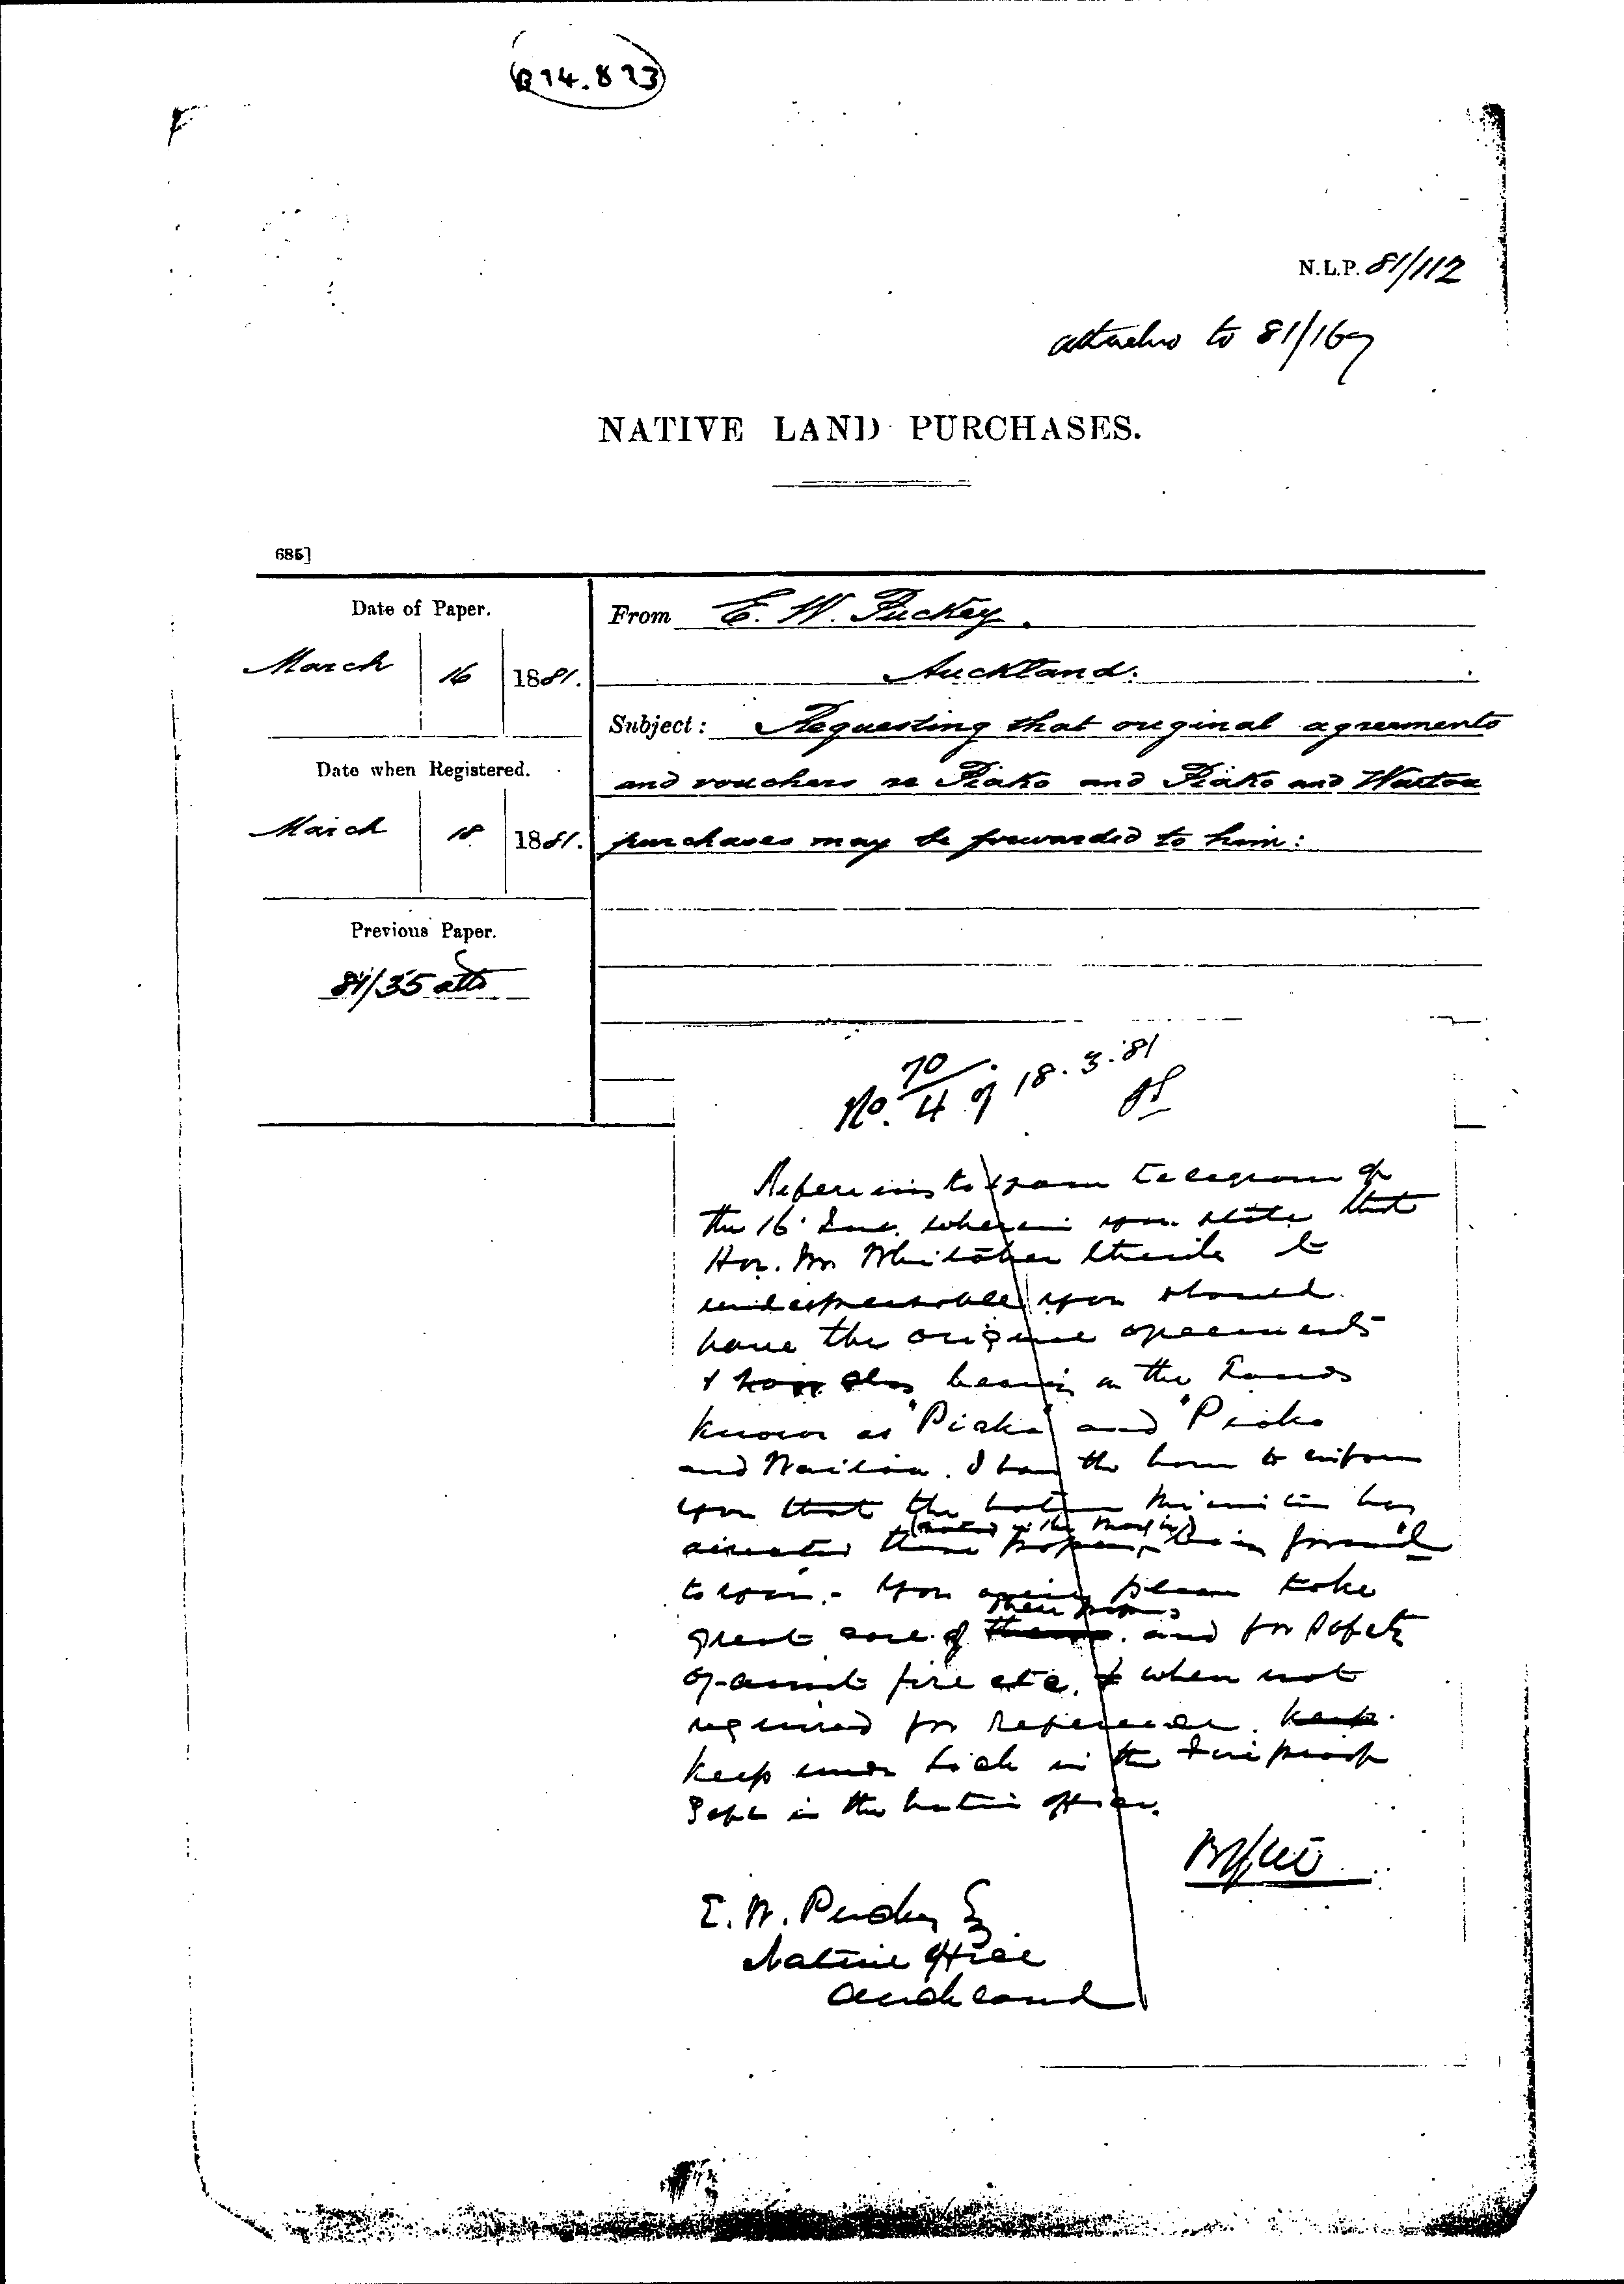 R14.823
N.L.P. 81/112
attached to 81/169
NATIVE LAND PURCHASES.
685]
Date of Paper.
March 16 1881.
Date when Registered.
March 18 1881.
Previous Paper.
81/35 atts
From E. W. Puckey.
Auckland.
Subject: Requesting that original agreements
and vouchers re Piako and Piako and Waitoa
purchases may be forwarded to him:
No. 70/4 of 18.3.81
Referring to your telegram of
the 16 Inst. wherein you state that
Hon. Mr Whitaker thinks it
indispensable you should
have the original agreements
& bearing on the Lands
known as "Piako" and "Piako
and Waitoa. I have the honor to inform
you that the Native Minister has
directed these papers, (noted in the margin) being forward'd
to you. - You will please take
great care of these papers and for safety
against fire etc. & when not
required for reference. keep
keep under Lock in the Fire proof
Safe in the Native Office.
E. W. Puckey Esq
Native Office
Auckland